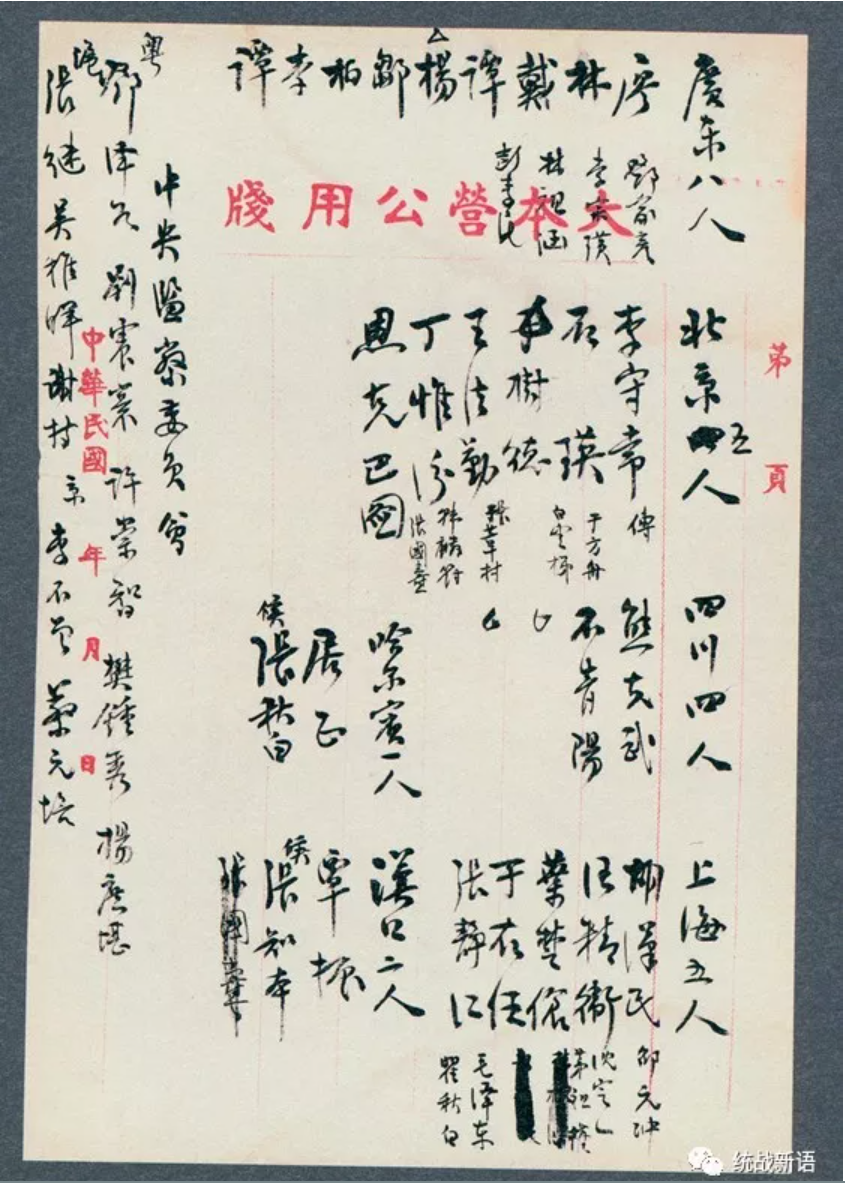 廣東八人
廖
林
戴
譚
楊
鄒
柏
李
譚
鄧家彥
李宗黃
林祖涵
彭素民
大本營公用牋
第 頁
北京五人
李守常
石瑛
李樹德
王法勤
丁惟汾
恩克巴圖
傅
于方舟
白雲梯
張葦村
韓麟符
張國燾
四川四人
熊克武
石青陽
哈尔賓一人
居正
候
張秋白
上海五人
胡漢民
汪精衛
葉楚傖
于右任
張靜江
邵元冲
沈定一
茅祖權
毛泽东
瞿秋白
漢口二人
覃振
候
張知本
張國燾
中央監察委員會
粤
鄧泽如 劉震寰 許崇智 樊鍾秀 楊庶堪
滬
張继 吴稚晖 謝持 京 李石曾 蔡元培
中華民國 年 月 日
统战新语